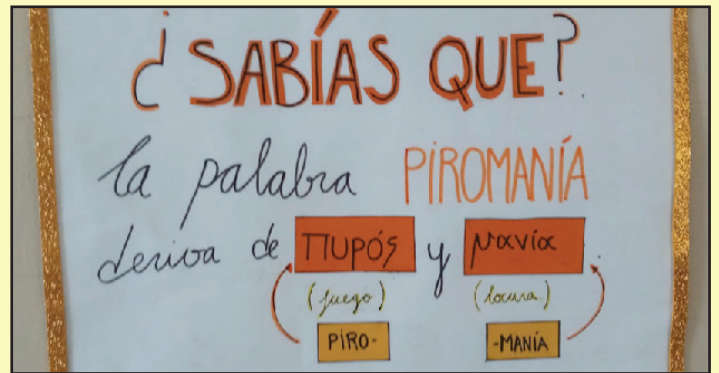 ¿SABÍAS QUE?
la palabra PIROMANÍA
deriva de πυρός y μανία
(fuego) (locura)
PIRO- -MANÍA